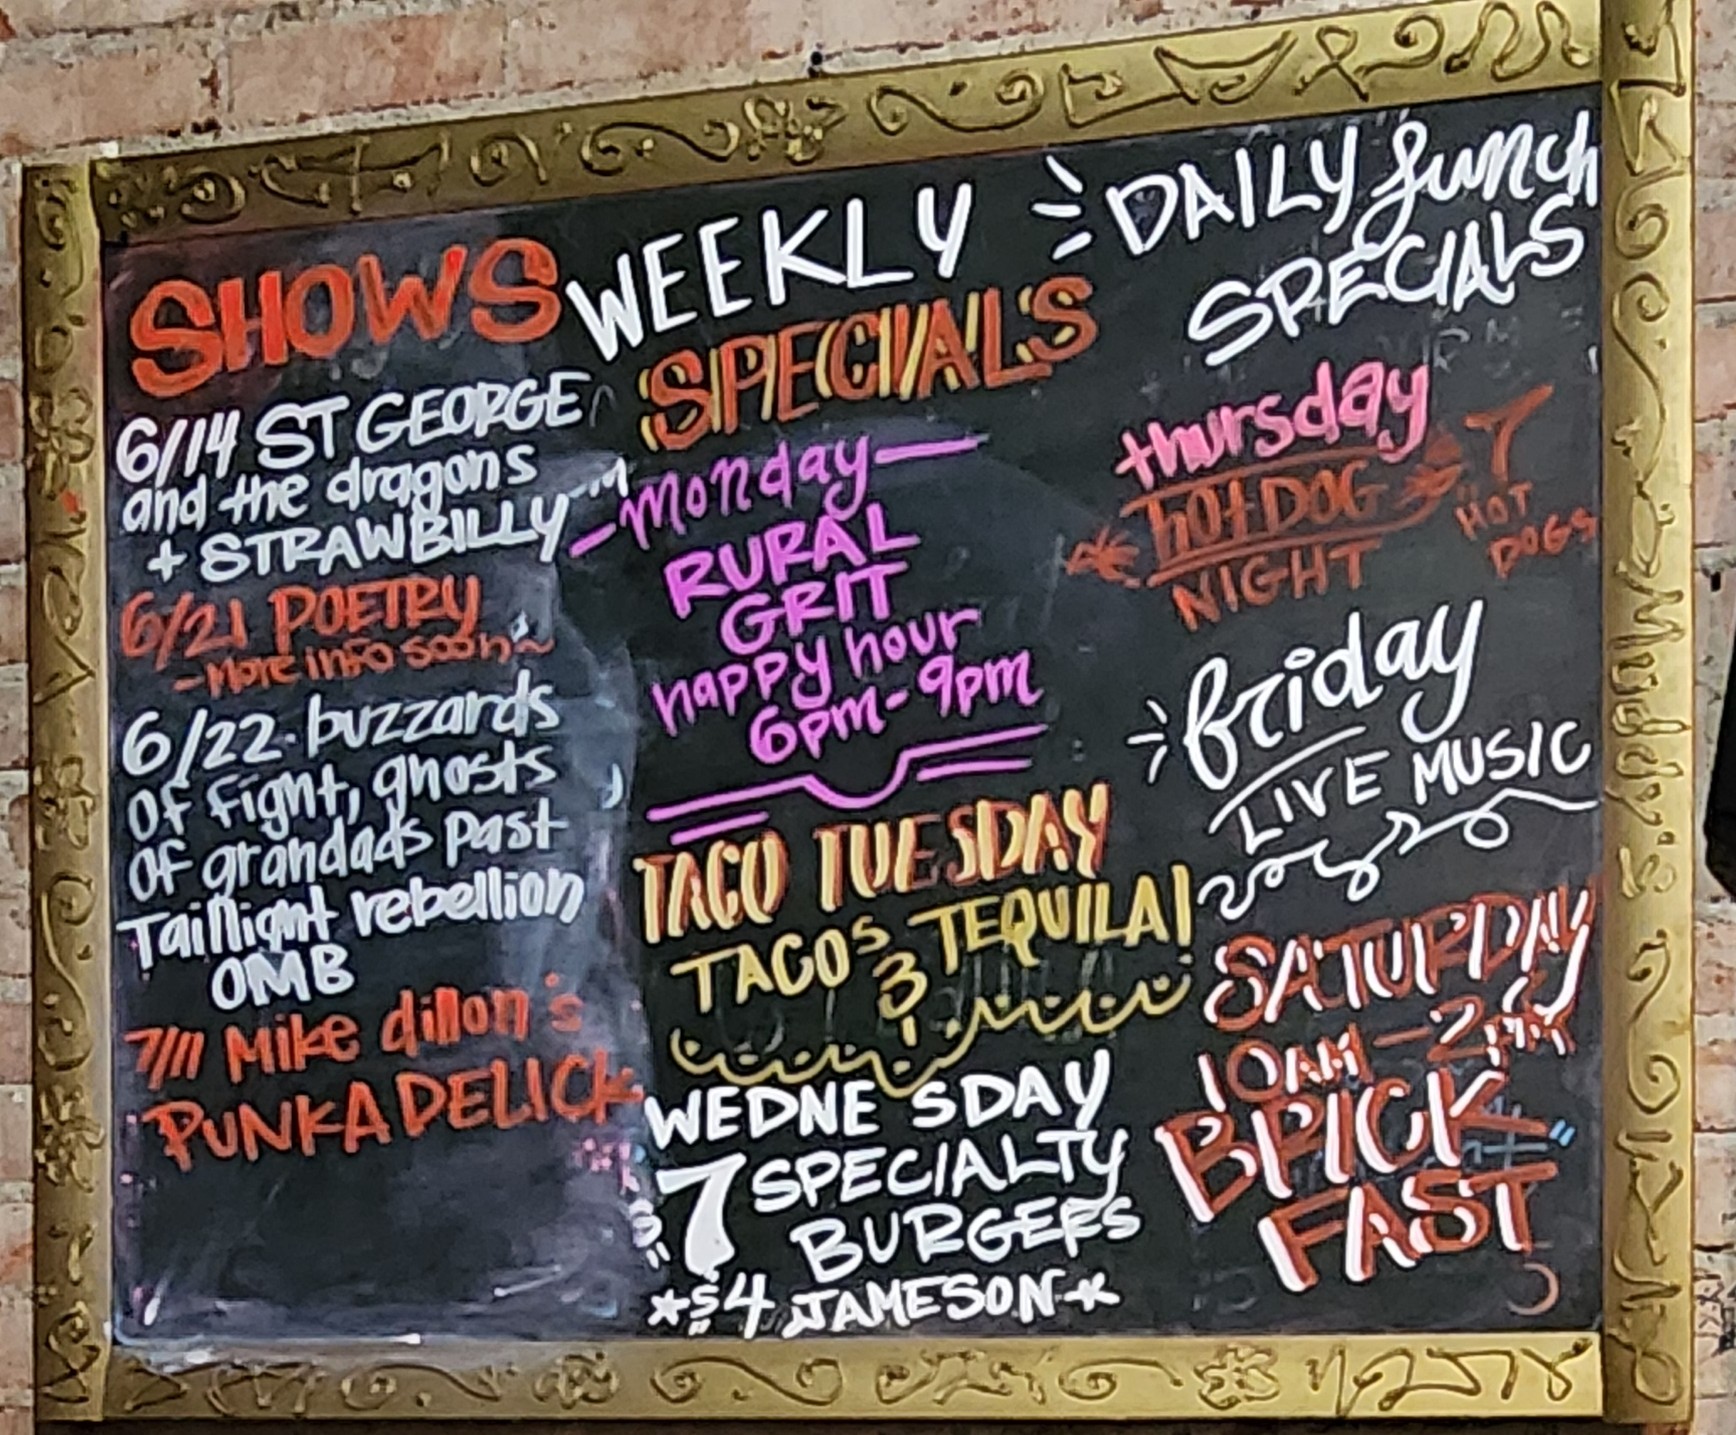 SHOWS
6/14 ST GEORGE
and the dragons
+ STRAWBILLY
6/21 POETRY
-More info soon~
6/22. buzzards
Of fight, ghosts
Of grandads past
Taillight rebellion
OMB
7/11 Mike dillon's
PUNKADELICK
WEEKLY
SPECIALS
-Monday-
RURAL
GRIT
happy hour
6pm-9pm
TACO TUESDAY
TACOS
TEQUILA!
WEDNESDAY
$7 SPECIALTY
BURGERS
*$4 JAMESON*
DAILY lunch
SPECIALS
thursday
hot DOG
NIGHT
7
HOT
DOGS
friday
LIVE MUSIC
SATURDAY
10AM-2PM
BRICK
FAST